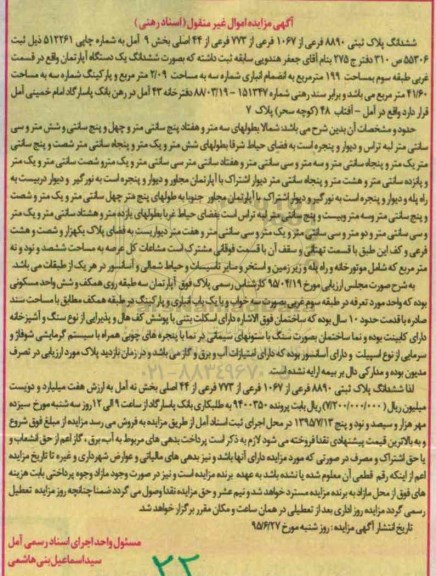 آگهی مزایده اموال غیر منقول (اسناد رهنی)
ششدانگ پلاک ثبتی ۸۸۹۰ فرعی از ۱۰۶۷ فرعی از ۷۷۳ فرعی از ۴۴ اصلی بخش ۹ آمل به شماره چاپی ۵۱۲۲۶۱ ذیل ثبت
۵۵۳۰۶ ص ۳۱۰ دفتر ج ۲۷۵ بنام آقای جعفر هندویی سابقه ثبت داشته که بصورت ششدانگ یک دستگاه آپارتمان واقع در قسمت
غربی طبقه سوم بمساحت ۱۹۹ مترمربع به انضمام انباری شماره سه به مساحت ۲/۰۹ متر مربع و پارکینگ شماره سه به مساحت
۴۱/۶۰ متر مربع می باشد و برابر سند رهنی شماره ۱۵۱۳۴۷ – ۸۸/۰۳/۱۹ دفترخانه ۴۳ آمل در رهن بانک پاسارگاد امام خمینی آمل
قرار دارد واقع در آمل - آفتاب ۴۸ (کوچه سحر) پلاک ۷
حدود و مشخصات آن بدین شرح می باشد: شمالا بطولهای سه متر و هفتاد پنج سانتی متر و چهل و پنج سانتی و شش متر و سی
سانتی متر لبه تراس و دیوار و پنجره است به فضای حیاط شرقا بطولهای شش متر و یک متر و پنجاه سانتی متر شصت و پنج سانتی
متر یک متر و پنجاه سانتی متر و سه متر و سی سانتی متر و هفتاد سانتی متر سی سانتی متر و یک مترو شصت سانتی متر و یک متر
و پانزده سانتی متر و هشت متر و پنجاه سانتی متر دیوار اشتراک با آپارتمان مجاور و دیوار و پنجره است به نورگیر و دیوار دربیست به
راه پله و دیوار و پنجره است به نورگیر و دیوار اشتراک با آپارتمان مجاور جنوبا به طولهای پنج متر چهل سانتی متر و یک متر و شصت
و پنج سانتی متر و سه متر وبیست و پنج سانتی متر لبه تراس است بفضای حیاط غربا بطولهای یازده متر و هشتاد سانتی متر و یک متر
و سی سانتی متر و دو متر و سی سانتی متر و یک متر و سی سانتی متر و هفت متر دیواریست به فضای پلاک یکهزار و شصت و هشت
فرعی و کف این طبق با قسمت تهتانی و سقف آن با قسمت فوقانی مشترک است مشاعات کل عرصه به مساحت ششصد و نود و نه
متر مربع که شامل موتورخانه و راه پله و زیرزمین و استخر و سایر تاسیسات و حیاط شمالی و آسانسور در هر یک از طبقات می باشد.
به شرح صورت مجلس ارزیابی مورخ ۹۵/۰۴/۱۹ کارشناس رسمی پلاک فوق آپارتمان سه طبقه روی همکف و شش واحد مسکونی
بوده که واحد مورد تعرفه در طبقه سوم غربی بصورت سه خواب و با یک باب انباری و پارکینگ در طبقه همکف مطابق با مساحت سند
صادره با قدمت حدود ۱۰ سال بوده که ساختمان فوق الاشاره دارای اسکلت بتنی با پوشش کف هال و پذیرایی از نوع سنگ و آشپزخانه
دارای کابینت بوده و نما ساختمان بصورت سنگ با ستونهای سیمانی در نما با پنجره های چوبی همراه با سیستم گرمایشی شوفاژ و
سرمایی از نوع اسپیلت و دارای آسانسور بوده که دارای امتیازات آب و برق و گاز می باشد و در زمان بازدید پلاک مورد ارزیابی در تصرف
مدیون بوده و مدارکی دال بر بیمه ارایه نشده است.
لذا ششدانگ پلاک ثبتی ۸۸۹۰ فرعی از ۱۰۶۷ فرعی از ۷۷۳ فرعی از ۴۴ اصلی بخش نه آمل به ارزش هفت میلیارد و دویست
میلیون ریال (۷/۲۰۰/۰۰۰/۰۰۰) ریال بابت پرونده ۹۴۰۰۳۵۰ به طلبکاری بانک پاسارگاد از ساعت ۹ الی ۱۲ روز سه شنبه مورخ سیزده
مهر هزار و سیصد و نود و پنج ۱۳۹۵/۷/۱۳ در محل اجرای ثبت اسناد آمل از طریق مزایده به فروش می رسد مزایده از مبلغ فوق شروع
و به بالاترین قیمت پیشنهادی نقدا فروخته می شود لازم به ذکر است پرداخت بدهی های مربوط به آب، برق، گاز اعم از حق انشعاب و
یا حق اشتراک و مصرف در صورتی که مورد مزایده دارای آنها باشد و نیز بدهی های مالیاتی و عوارض شهرداری و غیره تا تاریخ مزایده
اعم از اینکه رقم قطعی آن معلوم شده یا نشده باشد به عهده برنده مزایده است و نیز در صورت وجود مازاد وجوه پرداختی بابت هزینه
های فوق از محل مازاد به برنده مزایده مسترد خواهد شد و نیم عشر و حق مزایده نقدا وصول می گردد ضمنا چنانچه روز مزایده تعطیل
رسمی گردد مزایده روز اداری بعد از تعطیلی در همان ساعت و مکان مقرر برگزار خواهد شد.
تاریخ انتشار آگهی مزایده: روز شنبه مورخ ۹۵/۶/۲۷
مسئول واحد اجرای اسناد رسمی آمل
سید اسماعیل بنی هاشمی
۲۲